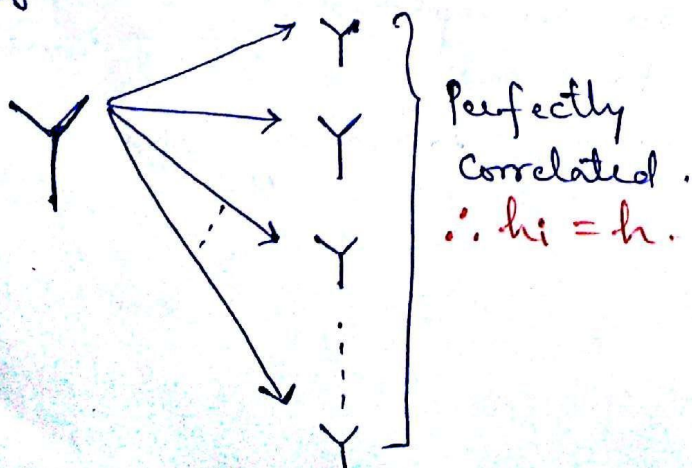 Perfectly
Correlated.
∴ hi = h.